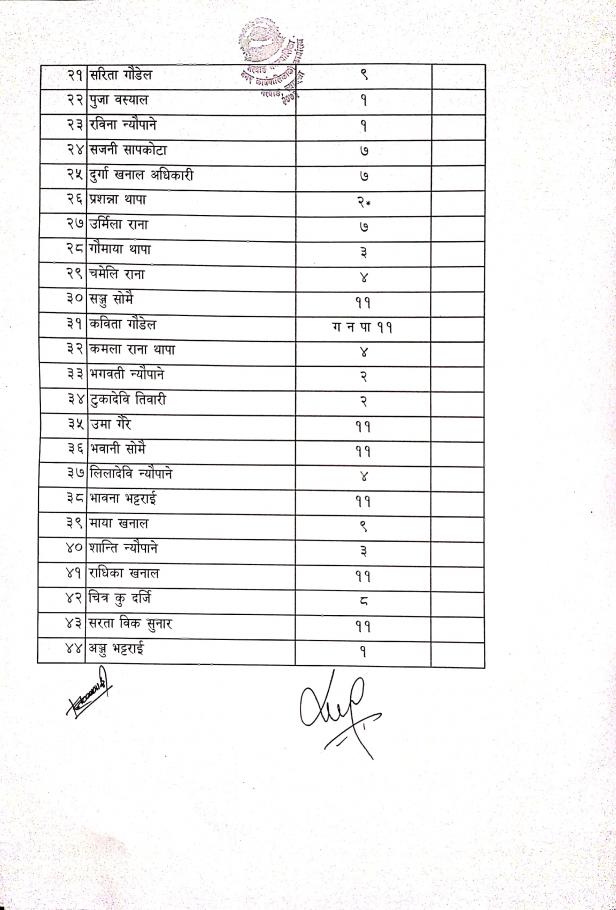 २१ सरिता गौडेल ९
२२ पुजा वस्याल १
२३ रविना न्यौपाने १
२४ सजनी सापकोटा ७
२५ दुर्गा खनाल अधिकारी ७
२६ प्रशन्ना थापा २
२७ उर्मिला राना ७
२८ गौमाया थापा ३
२९ चमेलि राना ४
३० सञ्जु सोमै ११
३१ कविता गौडेल ग न पा ११
३२ कमला राना थापा ४
३३ भगवती न्यौपाने २
३४ टुकादेवि तिवारी २
३५ उमा गैरे ११
३६ भवानी सोमै ११
३७ लिलादेवि न्यौपाने ४
३८ भावना भट्टराई ११
३९ माया खनाल ९
४० शान्ति न्यौपाने ३
४१ राधिका खनाल ११
४२ चित्र कु दर्जि ८
४३ सरता विक सुनार ११
४४ अञ्जु भट्टराई १